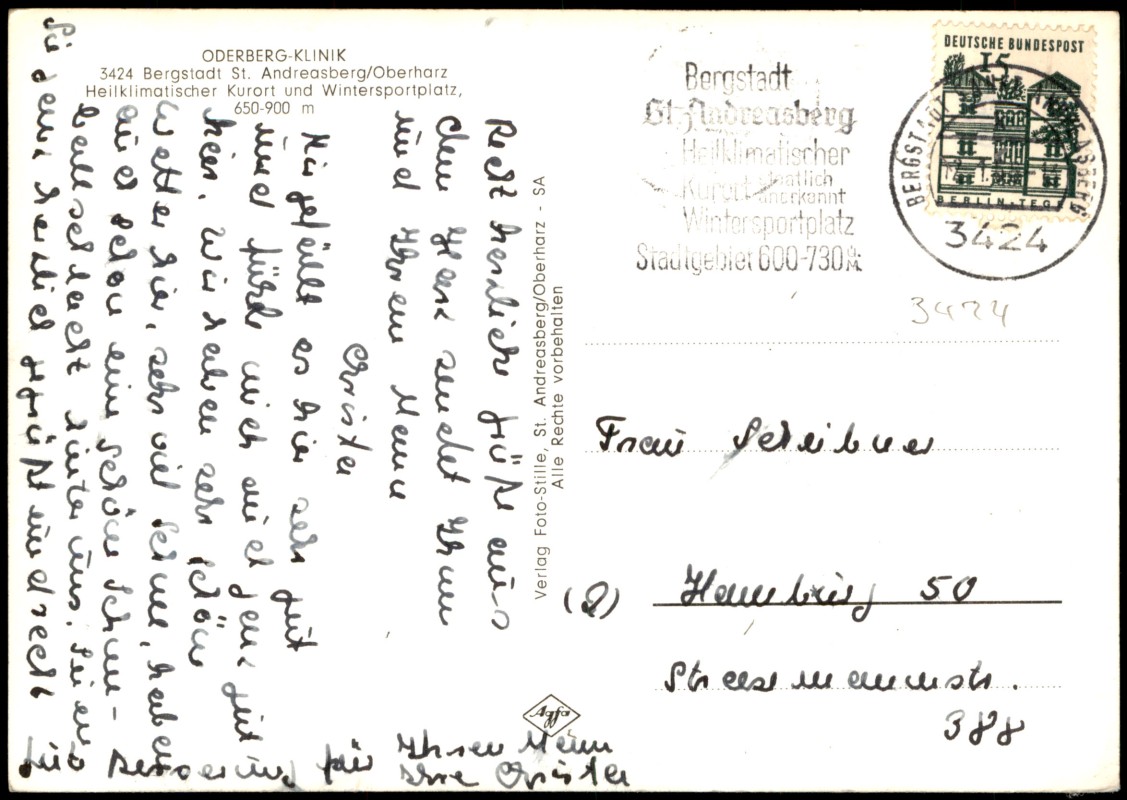 ODERBERG-KLINIK
3424 Bergstadt St. Andreasberg/Oberharz
Heilklimatischer Kurort und Wintersportplatz,
650-900 m
Recht herzliche Grüße aus
dem Harz sendet Ihnen
und Ihrem Mann
Christa
Mir gefällt es hier sehr gut
und fühle mich auch ganz gut
hier. Wir haben sehr schön
Wetter hier, sehr viel Schnee, haben
auch schon eine schöne Schnee-
ballschlacht hinter uns. Seien
Sie ganz herzlich gegrüßt und recht
gute Besserung für Ihren Mann
Ihre Christa
Verlag Foto-Stille, St. Andreasberg/Oberharz - SA
Alle Rechte vorbehalten
Agfa
Bergstadt
St. Andreasberg
Heilklimatischer
Kurort staatlich
anerkannt
Wintersportplatz
Stadtgebiet 600-730 m
DEUTSCHE BUNDESPOST
15
BERLIN-TEGEL
BERGSTADT ST ANDREASBERG
3424
3424
Frau Scheibner
(2) Hamburg 50
Stresemannstr.
388